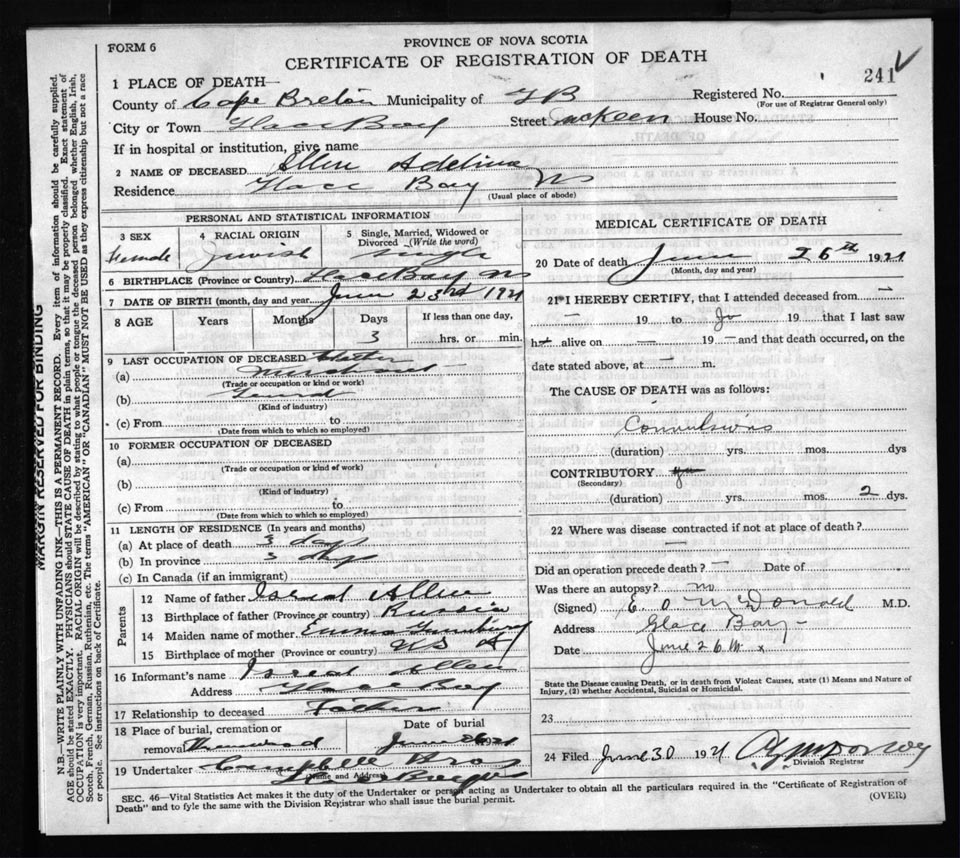 FORM 6
PROVINCE OF NOVA SCOTIA
CERTIFICATE OF REGISTRATION OF DEATH
241
1 PLACE OF DEATH—
County of Cape Breton Municipality of GB Registered No.
(For use of Registrar General only)
City or Town Glace Bay Street McKeen House No.
If in hospital or institution, give name
2 NAME OF DECEASED Allen Adelina
Residence Glace Bay NS
(Usual place of abode)
PERSONAL AND STATISTICAL INFORMATION
3 SEX 4 RACIAL ORIGIN 5 Single, Married, Widowed or Divorced (Write the word)
Female Jewish Single
6 BIRTHPLACE (Province or Country) Glace Bay NS
7 DATE OF BIRTH (month, day and year) June 23rd 1921
8 AGE Years Months Days If less than one day,
3 hrs. or min.
9 LAST OCCUPATION OF DECEASED
(a) Merchant
(Trade or occupation or kind or work)
(b) General
(Kind of industry)
(c) From to
(Date from which to which so employed)
10 FORMER OCCUPATION OF DECEASED
(a)
(Trade or occupation or kind of work)
(b)
(Kind of industry)
(c) From to
(Date from which to which so employed)
11 LENGTH OF RESIDENCE (In years and months)
(a) At place of death 3 days
(b) In province 3 days
(c) In Canada (if an immigrant)
Parents
12 Name of father Isreal Allen
13 Birthplace of father (Province or country) Russia
14 Maiden name of mother Emma
15 Birthplace of mother (Province or country) US A
16 Informant's name Isreal Allen
Address Glace Bay
17 Relationship to deceased Father
18 Place of burial, cremation or removal Date of burial
Greenwood June 26 1921
19 Undertaker Campbell Bros
(Name and Address) Glace Bay NS
MEDICAL CERTIFICATE OF DEATH
20 Date of death June 26th 1921
(Month, day and year)
21 I HEREBY CERTIFY, that I attended deceased from —
— 19 to 19 that I last saw
h alive on — 19 — and that death occurred, on the
date stated above, at — m.
The CAUSE OF DEATH was as follows:
Convulsions
(duration) yrs. mos. dys
CONTRIBUTORY
(Secondary)
(duration) yrs. mos. 2 dys.
22 Where was disease contracted if not at place of death?
—
Did an operation precede death? — Date of
Was there an autopsy? no
(Signed) E. O. McDonald M.D.
Address Glace Bay
Date June 26
State the Disease causing Death, or in death from Violent Causes, state (1) Means and Nature of
Injury, (2) whether Accidental, Suicidal or Homicidal.
23
24 Filed June 30 1921
Division Registrar
SEC. 46—Vital Statistics Act makes it the duty of the Undertaker or person acting as Undertaker to obtain all the particulars required in the "Certificate of Registration of
Death" and to fyle the same with the Division Registrar who shall issue the burial permit.
(OVER)
MARGIN RESERVED FOR BINDING
N.B.—WRITE PLAINLY, WITH UNFADING INK—THIS IS A PERMANENT RECORD. Every item of information should be carefully supplied.
AGE should be stated EXACTLY. PHYSICIANS should STATE CAUSE OF DEATH in plain terms, so that it may be properly classified. Exact statement of
OCCUPATION is very important. RACIAL ORIGIN will be described by stating to what people or tongue the deceased person belonged whether English, Irish,
Scotch, French, German, Russian, Ruthenian, etc. The terms "AMERICAN" OR "CANADIAN" MUST NOT BE USED as they express citizenship but not a race
or people. See instructions on back of Certificate.